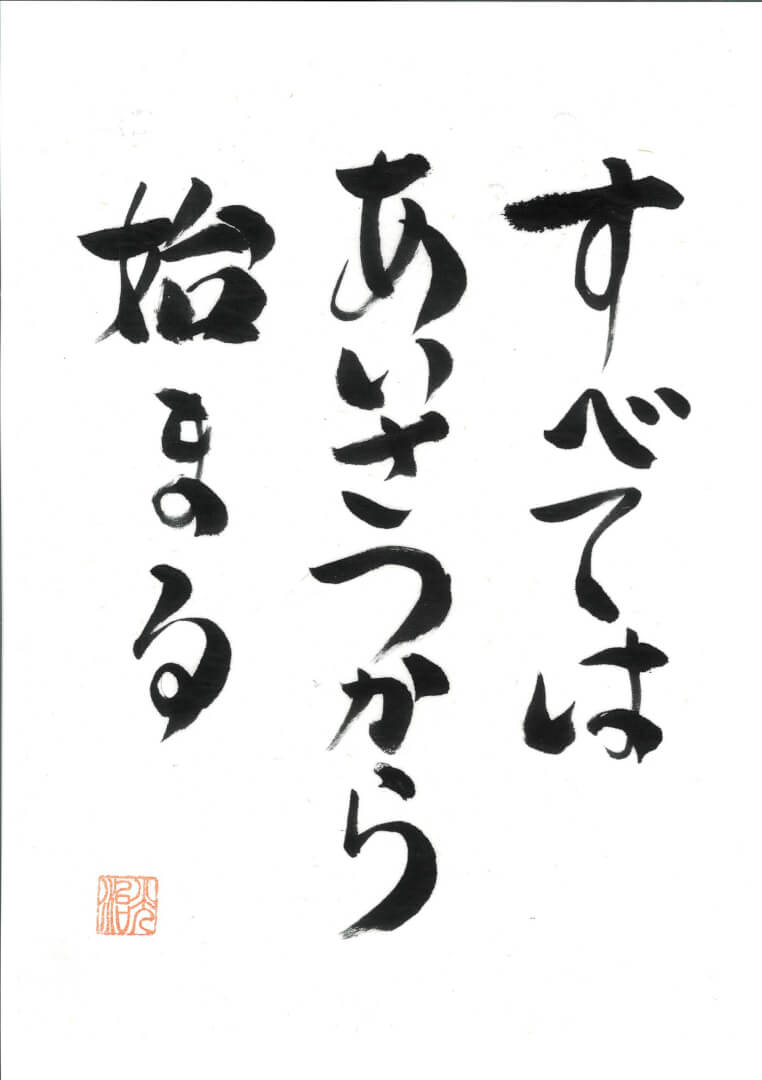 すべては
あいさつから
始まる